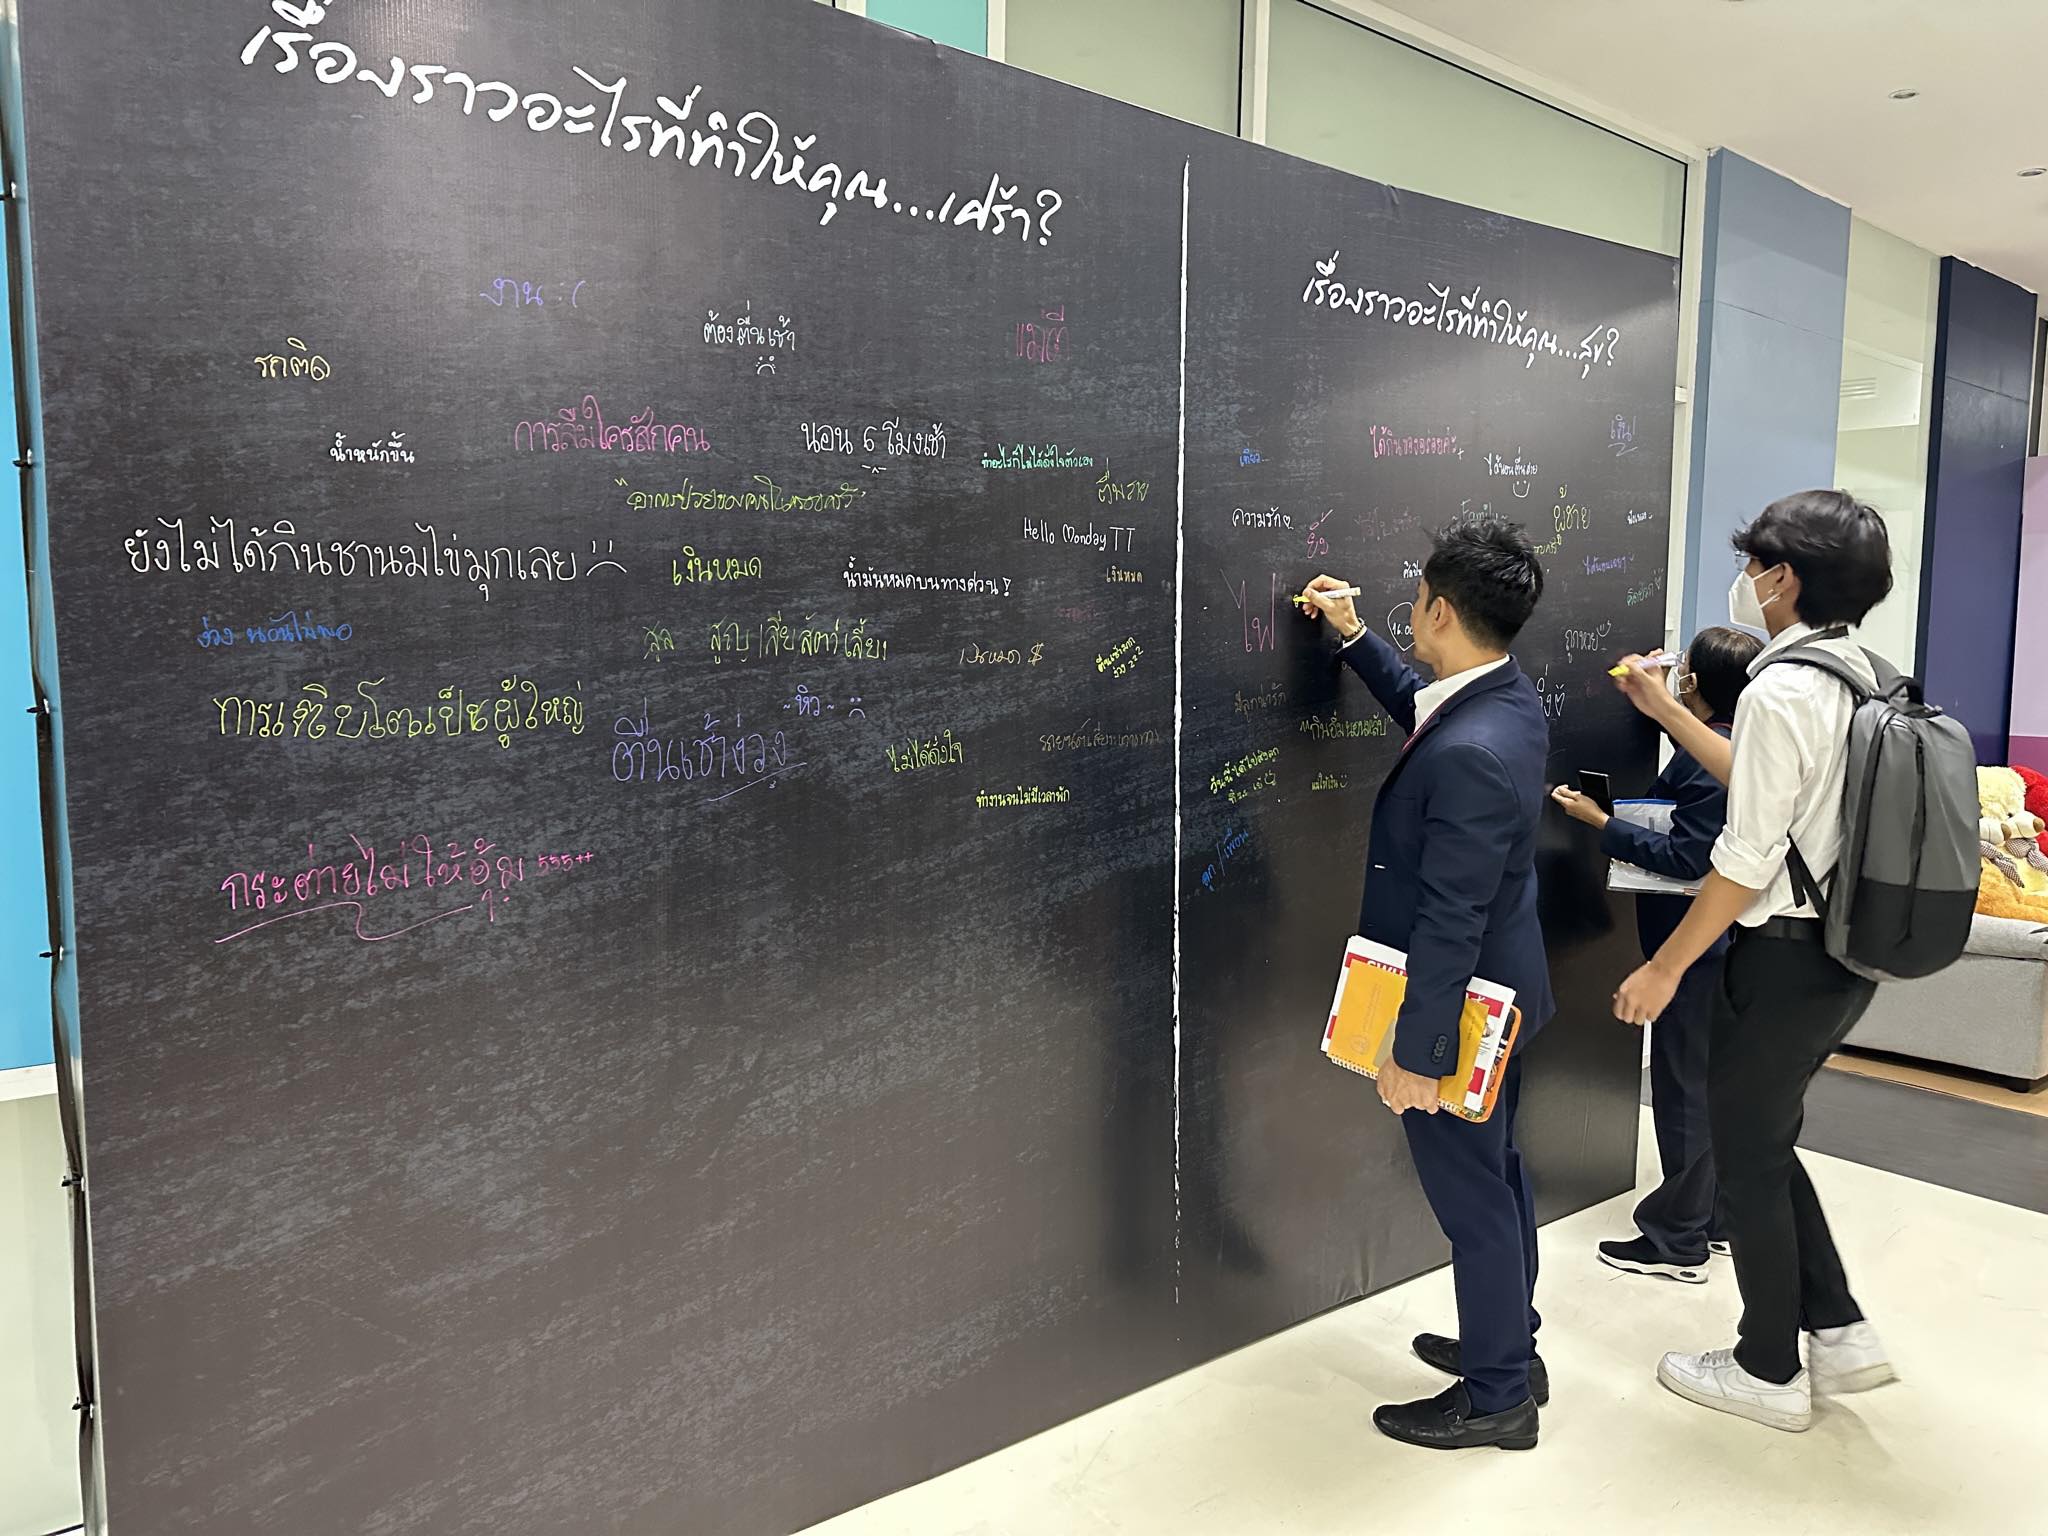 เรื่องราวอะไรที่ทำให้คุณ...เศร้า?
งาน :(
ต้องตื่นเช้า
แม่ตี
รถติด
น้ำหนักขึ้น
การลืมใครสักคน
นอน 6 โมงเช้า
ทำอะไรก็ไม่ได้ดั่งใจตัวเอง
"อาการป่วยของคนในครอบครัว"
ตื่นสาย
Hello Monday TT
ยังไม่ได้กินชานมไข่มุกเลย
เงินหมด
น้ำมันหมดบนทางด่วน!
เงินหมด
ง่วง นอนไม่พอ
สูญเสียสัตว์เลี้ยง
เงินหมด $
ตื่นเช้ามาก
ง่วง zzz
การเติบโตเป็นผู้ใหญ่
ตื่นเช้าง่วง
~หิว~
ไม่ได้ดั่งใจ
ทำงานจนไม่มีเวลาพัก
กระต่ายไม่ให้อุ้ม 555++
เรื่องราวอะไรที่ทำให้คุณ...สุข?
เที่ยว...
ได้กินของอร่อยค่ะ
เงิน!
ได้นอนตื่นสาย
ความรัก
ผู้ชาย
ไฟ
16.00
ถูกหวย
มีลูกน่ารัก
"กินอิ่มนอนหลับ"
วันนี้ได้ไปส่งลูก
แม่ให้เงิน
ลูก / เพื่อน
SWU